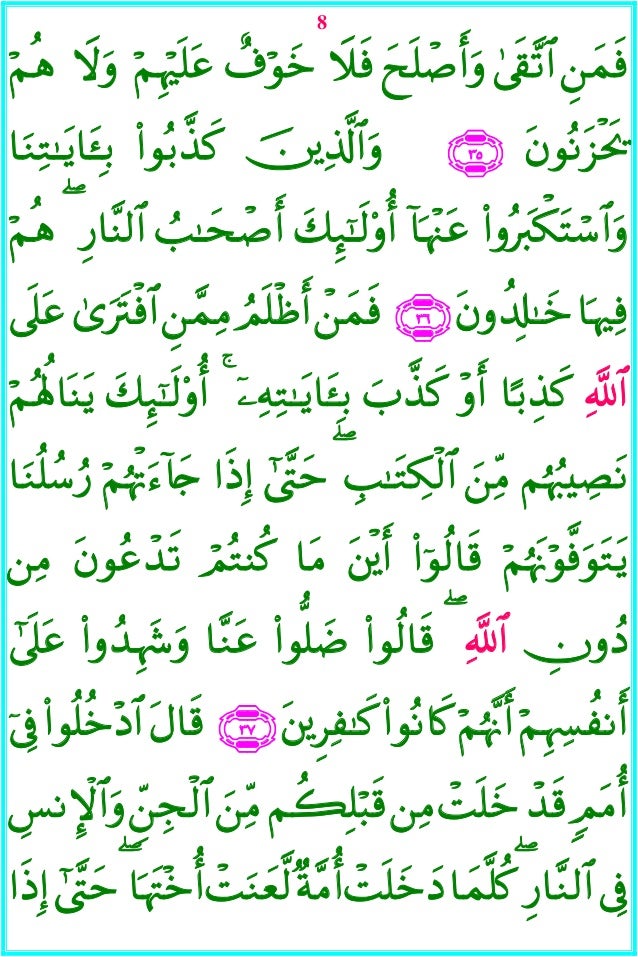 8
فَمَنِ ٱتَّقَىٰ وَأَصْلَحَ فَلَا خَوْفٌ عَلَيْهِمْ وَلَا هُمْ
يَحْزَنُونَ ٣٥ وَٱلَّذِينَ كَذَّبُوا۟ بِـَٔايَـٰتِنَا
وَٱسْتَكْبَرُوا۟ عَنْهَآ أُو۟لَـٰٓئِكَ أَصْحَـٰبُ ٱلنَّارِ ۖ هُمْ
فِيهَا خَـٰلِدُونَ ٣٦ فَمَنْ أَظْلَمُ مِمَّنِ ٱفْتَرَىٰ عَلَى
ٱللَّهِ كَذِبًا أَوْ كَذَّبَ بِـَٔايَـٰتِهِۦٓ ۚ أُو۟لَـٰٓئِكَ يَنَالُهُمْ
نَصِيبُهُم مِّنَ ٱلْكِتَـٰبِ ۖ حَتَّىٰٓ إِذَا جَآءَتْهُمْ رُسُلُنَا
يَتَوَفَّوْنَهُمْ قَالُوٓا۟ أَيْنَ مَا كُنتُمْ تَدْعُونَ مِن
دُونِ ٱللَّهِ ۖ قَالُوا۟ ضَلُّوا۟ عَنَّا وَشَهِدُوا۟ عَلَىٰٓ
أَنفُسِهِمْ أَنَّهُمْ كَانُوا۟ كَـٰفِرِينَ ٣٧ قَالَ ٱدْخُلُوا۟ فِىٓ
أُمَمٍ قَدْ خَلَتْ مِن قَبْلِكُم مِّنَ ٱلْجِنِّ وَٱلْإِنسِ
فِى ٱلنَّارِ ۖ كُلَّمَا دَخَلَتْ أُمَّةٌ لَّعَنَتْ أُخْتَهَا ۖ حَتَّىٰٓ إِذَا